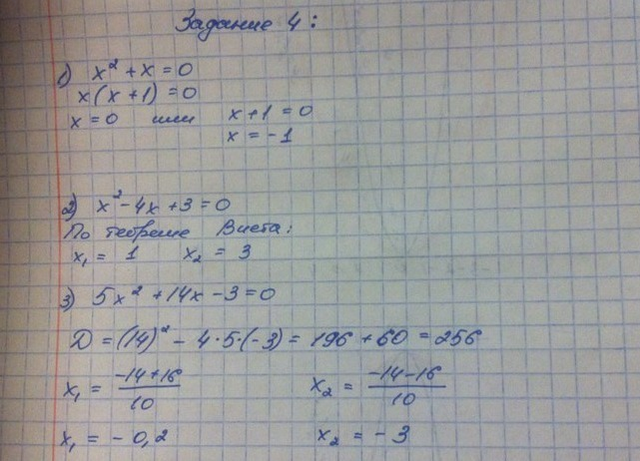 Задание 4:
1) x² + x = 0
x(x + 1) = 0
x = 0 или x + 1 = 0
x = -1
2) x² - 4x + 3 = 0
По теореме Виета:
x₁ = 1 x₂ = 3
3) 5x² + 14x - 3 = 0
D = (14)² - 4·5·(-3) = 196 + 60 = 256
x₁ = (-14+16)/10 x₂ = (-14-16)/10
x₁ = -0,2 x₂ = -3